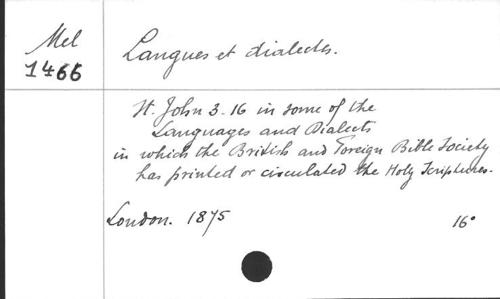 Mel
1466
Langues et dialectes.
St. John 3.16 in some of the
Languages and Dialects
in which the British and Foreign Bible Society
has printed or circulated the Holy Scriptures.
London. 1875
16°